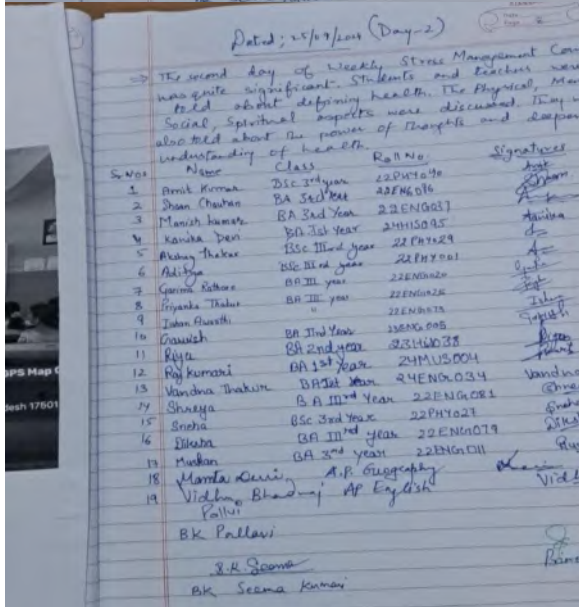 Dated; 25/09/2024 (Day-2)
⇒ The second day of Weekly Stress Management Cour
was quite significant. Students and teachers were
told about defining health. The Physical, Men
Social, Spiritual aspects were discussed. They w
also told about the power of thoughts and deeper
understanding of health.
Sr.No. Name Class Roll No. Signatures
1 Amit Kumar BSc 3rd year 22PHY040
2 Shaan Chauhan BA 3rd Year 22ENG086
3 Manish Kumar BA 3rd Year 22ENG037
4 Kanika Devi BA 1st Year 24HIS095 Kanika
5 Akshay Thakur BSc IIIrd year 22PHY029
6 Aditya BSc IIIrd year 22PHY001
7 Garima Rathore BA III year 22ENG020
8 Priyanka Thakur BA III year 22ENG026
9 Ishan Awasthi " 22ENG073 Ishan
10 BA IInd Year 23ENG005
11 Riya BA 2nd year 23HIN038 Riya
12 Raj Kumari BA 1st year 24MUS004
13 Vandna Thakur BA 1st Year 24ENG034 Vandna
14 Shreya BA IIIrd Year 22ENG081
15 Sneha BSc 3rd Year 22PHY027 Sneha
16 Diksha BA IIIrd year 22ENG079 Diksh
17 Muskan BA 3rd year 22ENG011
18 Mamta Devi, A.P. Geography
19 Vidhu Bhardwaj AP English Vidh
Pallvi
BK Pallavi
B.K. Seema
BK Seema Kumari
GPS Map C
desh 17601